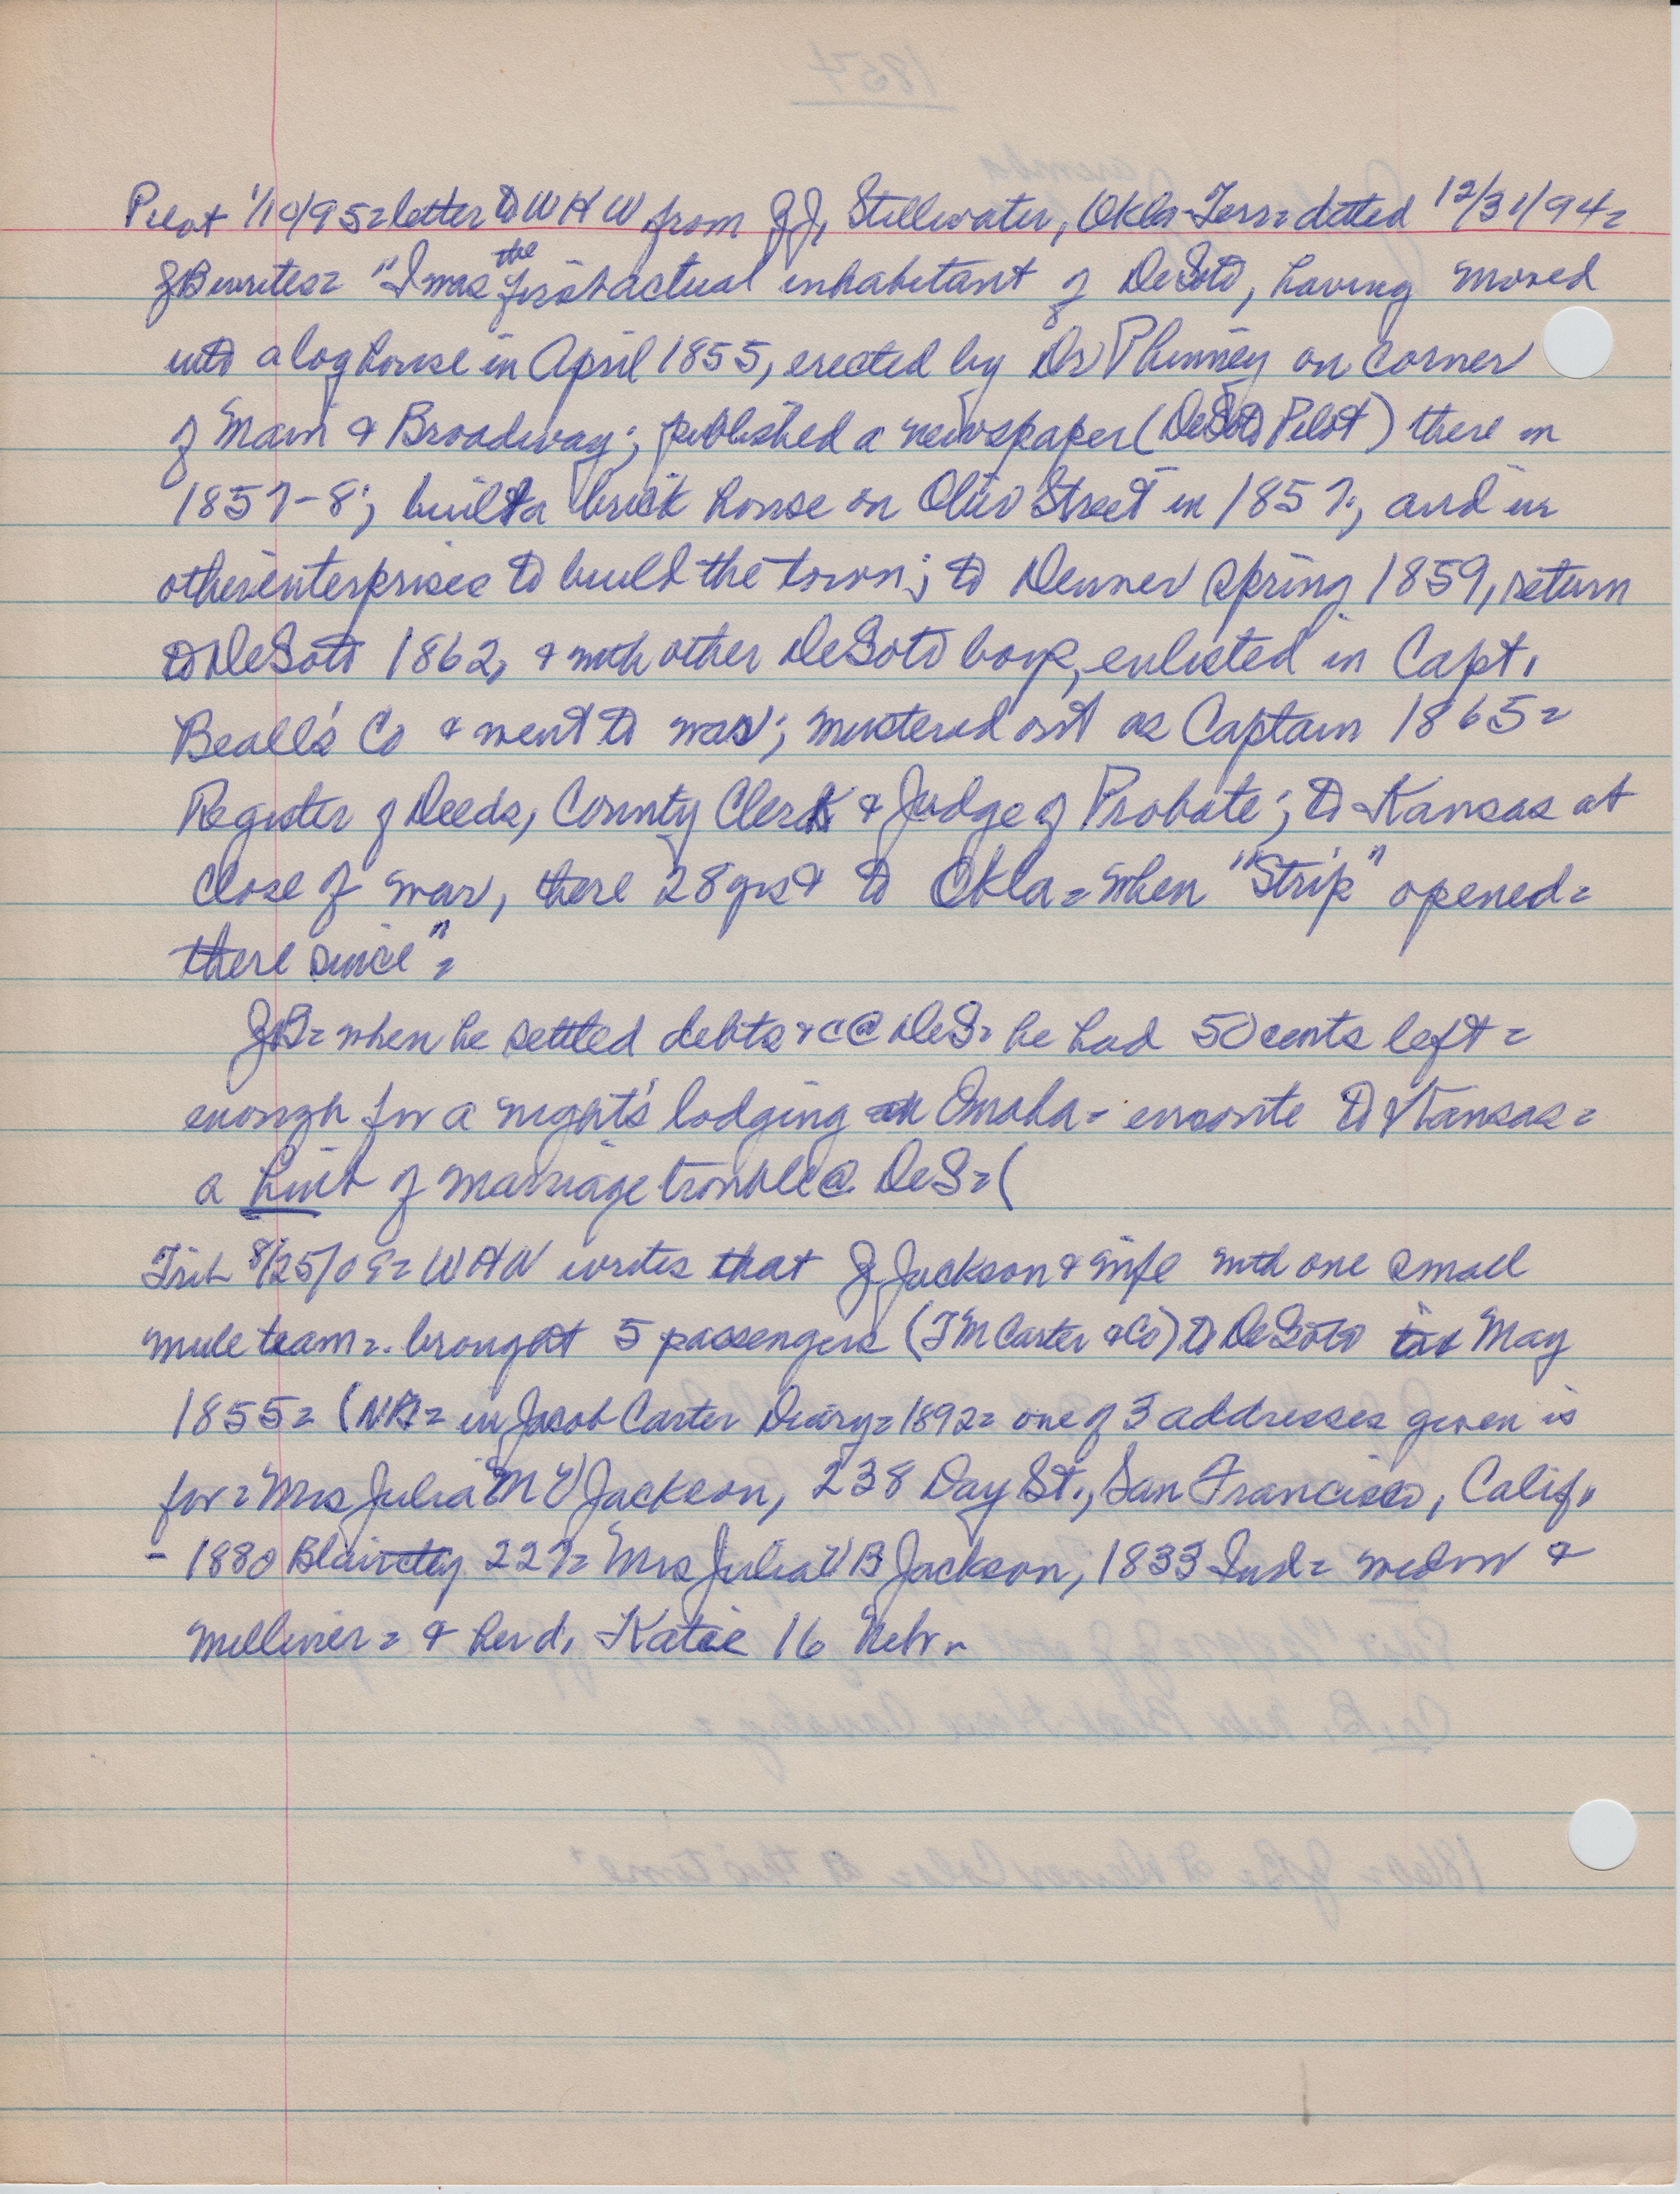 Pilot 1/10/95= letter to WHW from JJ, Stillwater, Okla Terr= dated 12/31/94=
JB writes= "I was the first actual inhabitant of DeSoto, having moved
into a log house in April 1855, erected by Dr Phinney on corner
of Main & Broadway; published a newspaper (DeSoto Pilot) there in
1857-8; built a brick house on Olive Street in 1857; and in
other enterprises to build the town; to Denver spring 1859, return
to DeSoto 1862, & with other DeSoto boys, enlisted in Capt.
Beall's Co & went to war; mustered out as Captain 1865=
Register of Deeds, County Clerk & Judge of Probate; to Kansas at
close of war, there 28 yrs & to Okla= when "Strip" opened=
there since"=
JB= when he settled debts &c @ DeS= he had 50 cents left=
enough for a night's lodging in Omaha- enroute to Kansas=
a hint of marriage trouble @ DeS= (
Trib 8/25/09= WHW writes that J Jackson & wife with one small
mule team= brought 5 passengers (JM Carter & Co) to DeSoto in May
1855= (NB= in Jacob Carter Diary= 1892= one of 3 addresses given is
for= Mrs Julia M V Jackson, 238 Day St., San Francisco, Calif.
- 1880 Blair city 227= Mrs Julia V B Jackson, 1833 Ind= widow &
milliner= & her d. Katie 16 Nebr.